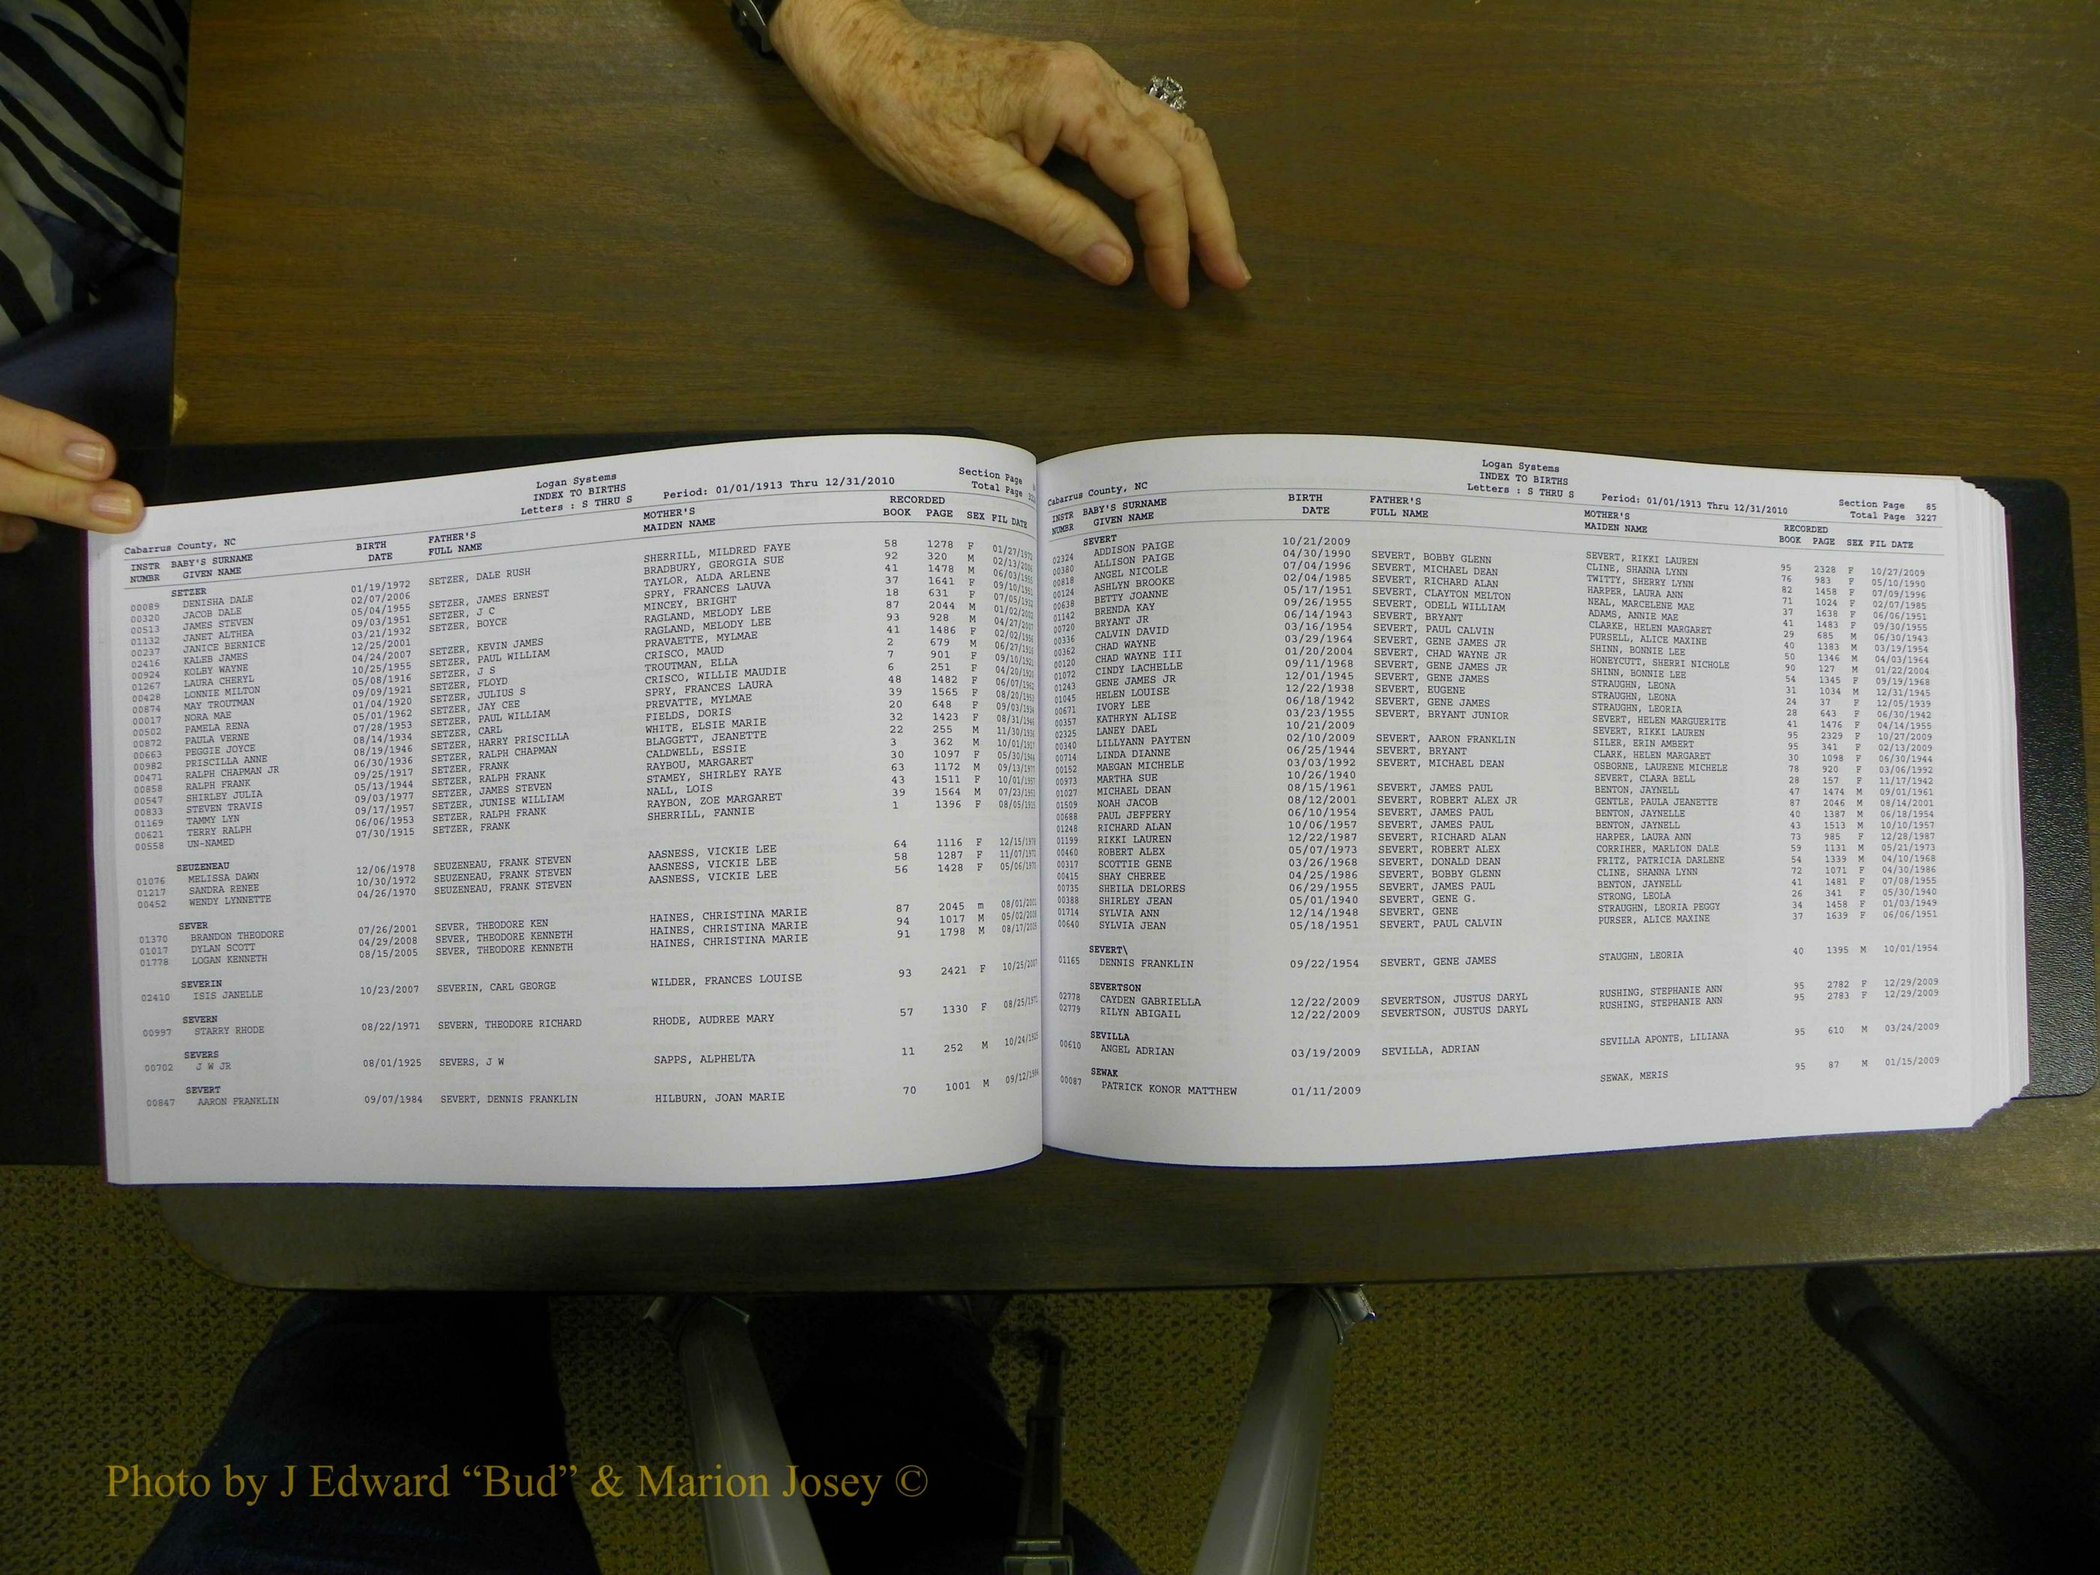 Logan Systems
INDEX TO BIRTHS
Letters : S THRU S
Period: 01/01/1913 Thru 12/31/2010
Section Page
Total Page
Cabarrus County, NC
INSTR BABY'S SURNAME BIRTH FATHER'S MOTHER'S RECORDED
NUMBR GIVEN NAME DATE FULL NAME MAIDEN NAME BOOK PAGE SEX FIL DATE
SETZER
00089 DENISHA DALE 01/19/1972 SETZER, DALE RUSH SHERRILL, MILDRED FAYE 58 1278 F 01/27/1972
00320 JACOB DALE 02/07/2006 BRADBURY, GEORGIA SUE 92 320 M 02/13/2006
00513 JAMES STEVEN 05/04/1955 SETZER, JAMES ERNEST TAYLOR, ALDA ARLENE 41 1478 M 06/03/1955
01132 JANET ALTHEA 09/03/1951 SETZER, J C SPRY, FRANCES LAUVA 37 1641 F 09/10/1951
00237 JANICE BERNICE 03/21/1932 SETZER, BOYCE MINCEY, BRIGHT 18 631 F 07/05/1932
02416 KALEB JAMES 12/25/2001 RAGLAND, MELODY LEE 87 2044 M 01/02/2002
00924 KOLBY WAYNE 04/24/2007 SETZER, KEVIN JAMES RAGLAND, MELODY LEE 93 928 M 04/27/2007
01267 LAURA CHERYL 10/25/1955 SETZER, PAUL WILLIAM PRAVAETTE, MYLMAE 41 1486 F 02/02/1956
00428 LONNIE MILTON 05/08/1916 SETZER, J S CRISCO, MAUD 2 679 M 06/27/1916
00874 MAY TROUTMAN 09/09/1921 SETZER, FLOYD TROUTMAN, ELLA 7 901 F 09/10/1921
00017 NORA MAE 01/04/1920 SETZER, JULIUS S CRISCO, WILLIE MAUDIE 6 251 F 04/20/1920
00502 PAMELA RENA 05/01/1962 SETZER, JAY CEE SPRY, FRANCES LAURA 48 1482 F 06/07/1962
00872 PAULA VERNE 07/28/1953 SETZER, PAUL WILLIAM PREVATTE, MYLMAE 39 1565 F 08/20/1953
00663 PEGGIE JOYCE 08/14/1934 SETZER, CARL FIELDS, DORIS 20 648 F 09/03/1934
00982 PRISCILLA ANNE 08/19/1946 SETZER, HARRY PRISCILLA WHITE, ELSIE MARIE 32 1423 F 08/31/1946
00471 RALPH CHAPMAN JR 06/30/1936 SETZER, RALPH CHAPMAN BLAGGETT, JEANETTE 22 255 M 11/30/1936
00858 RALPH FRANK 09/25/1917 SETZER, FRANK CALDWELL, ESSIE 3 362 M 10/01/1917
00547 SHIRLEY JULIA 05/13/1944 SETZER, RALPH FRANK RAYBOU, MARGARET 30 1097 F 05/30/1944
00833 STEVEN TRAVIS 09/03/1977 SETZER, JAMES STEVEN STAMEY, SHIRLEY RAYE 63 1172 M 09/13/1977
01169 TAMMY LYN 09/17/1957 SETZER, JUNISE WILLIAM NALL, LOIS 43 1511 F 10/01/1957
00621 TERRY RALPH 06/06/1953 SETZER, RALPH FRANK RAYBON, ZOE MARGARET 39 1564 M 07/23/1953
00558 UN-NAMED 07/30/1915 SETZER, FRANK SHERRILL, FANNIE 1 1396 F 08/05/1915
SEUZENEAU
01076 MELISSA DAWN 12/06/1978 SEUZENEAU, FRANK STEVEN AASNESS, VICKIE LEE 64 1116 F 12/15/1978
01217 SANDRA RENEE 10/30/1972 SEUZENEAU, FRANK STEVEN AASNESS, VICKIE LEE 58 1287 F 11/07/1972
00452 WENDY LYNNETTE 04/26/1970 SEUZENEAU, FRANK STEVEN AASNESS, VICKIE LEE 56 1428 F 05/06/1970
SEVER
01370 BRANDON THEODORE 07/26/2001 SEVER, THEODORE KEN HAINES, CHRISTINA MARIE 87 2045 m 08/01/2001
01017 DYLAN SCOTT 04/29/2008 SEVER, THEODORE KENNETH HAINES, CHRISTINA MARIE 94 1017 M 05/02/2008
01778 LOGAN KENNETH 08/15/2005 SEVER, THEODORE KENNETH HAINES, CHRISTINA MARIE 91 1798 M 08/17/2005
SEVERIN
02410 ISIS JANELLE 10/23/2007 SEVERIN, CARL GEORGE WILDER, FRANCES LOUISE 93 2421 F 10/25/2007
SEVERN
00997 STARRY RHODE 08/22/1971 SEVERN, THEODORE RICHARD RHODE, AUDREE MARY 57 1330 F 08/25/1971
SEVERS
00702 J W JR 08/01/1925 SEVERS, J W SAPPS, ALPHELTA 11 252 M 10/24/1925
SEVERT
00847 AARON FRANKLIN 09/07/1984 SEVERT, DENNIS FRANKLIN HILBURN, JOAN MARIE 70 1001 M 09/12/1984
Logan Systems
INDEX TO BIRTHS
Letters : S THRU S
Period: 01/01/1913 Thru 12/31/2010
Section Page 85
Total Page 3227
Cabarrus County, NC
INSTR BABY'S SURNAME BIRTH FATHER'S MOTHER'S RECORDED
NUMBR GIVEN NAME DATE FULL NAME MAIDEN NAME BOOK PAGE SEX FIL DATE
SEVERT
02324 ADDISON PAIGE 10/21/2009 SEVERT, RIKKI LAUREN 95 2328 F 10/27/2009
00380 ALLISON PAIGE 04/30/1990 SEVERT, BOBBY GLENN CLINE, SHANNA LYNN 76 983 F 05/10/1990
00818 ANGEL NICOLE 07/04/1996 SEVERT, MICHAEL DEAN TWITTY, SHERRY LYNN 82 1458 F 07/09/1996
00124 ASHLYN BROOKE 02/04/1985 SEVERT, RICHARD ALAN HARPER, LAURA ANN 71 1024 F 02/07/1985
00638 BETTY JOANNE 05/17/1951 SEVERT, CLAYTON MELTON NEAL, MARCELENE MAE 37 1638 F 06/06/1951
01142 BRENDA KAY 09/26/1955 SEVERT, ODELL WILLIAM ADAMS, ANNIE MAE 41 1483 F 09/30/1955
00720 BRYANT JR 06/14/1943 SEVERT, BRYANT CLARKE, HELEN MARGARET 29 685 M 06/30/1943
00336 CALVIN DAVID 03/16/1954 SEVERT, PAUL CALVIN PURSELL, ALICE MAXINE 40 1383 M 03/19/1954
00362 CHAD WAYNE 03/29/1964 SEVERT, GENE JAMES JR SHINN, BONNIE LEE 50 1346 M 04/03/1964
00120 CHAD WAYNE III 01/20/2004 SEVERT, CHAD WAYNE JR HONEYCUTT, SHERRI NICHOLE 90 127 M 01/22/2004
01072 CINDY LACHELLE 09/11/1968 SEVERT, GENE JAMES JR SHINN, BONNIE LEE 54 1345 F 09/19/1968
01243 GENE JAMES JR 12/01/1945 SEVERT, GENE JAMES STRAUGHN, LEONA 31 1034 M 12/31/1945
01045 HELEN LOUISE 12/22/1938 SEVERT, EUGENE STRAUGHN, LEONA 24 37 F 12/05/1939
00671 IVORY LEE 06/18/1942 SEVERT, GENE JAMES STRAUGHN, LEORIA 28 643 F 06/30/1942
00357 KATHRYN ALISE 03/23/1955 SEVERT, BRYANT JUNIOR SEVERT, HELEN MARGUERITE 41 1476 F 04/14/1955
02325 LANEY DAEL 10/21/2009 SEVERT, RIKKI LAUREN 95 2329 F 10/27/2009
00340 LILLYANN PAYTEN 02/10/2009 SEVERT, AARON FRANKLIN SILER, ERIN AMBERT 95 341 F 02/13/2009
00714 LINDA DIANNE 06/25/1944 SEVERT, BRYANT CLARK, HELEN MARGARET 30 1098 F 06/30/1944
00152 MAEGAN MICHELE 03/03/1992 SEVERT, MICHAEL DEAN OSBORNE, LAURENE MICHELE 78 920 F 03/06/1992
00973 MARTHA SUE 10/26/1940 SEVERT, CLARA BELL 28 157 F 11/17/1942
01027 MICHAEL DEAN 08/15/1961 SEVERT, JAMES PAUL BENTON, JAYNELL 47 1474 M 09/01/1961
01509 NOAH JACOB 08/12/2001 SEVERT, ROBERT ALEX JR GENTLE, PAULA JEANETTE 87 2046 M 08/14/2001
00688 PAUL JEFFERY 06/10/1954 SEVERT, JAMES PAUL BENTON, JAYNELLE 40 1387 M 06/18/1954
01248 RICHARD ALAN 10/06/1957 SEVERT, JAMES PAUL BENTON, JAYNELL 43 1513 M 10/10/1957
01199 RIKKI LAUREN 12/22/1987 SEVERT, RICHARD ALAN HARPER, LAURA ANN 73 985 F 12/28/1987
00460 ROBERT ALEX 05/07/1973 SEVERT, ROBERT ALEX CORRIHER, MARLION DALE 59 1131 M 05/21/1973
00317 SCOTTIE GENE 03/26/1968 SEVERT, DONALD DEAN FRITZ, PATRICIA DARLENE 54 1339 M 04/10/1968
00415 SHAY CHEREE 04/25/1986 SEVERT, BOBBY GLENN CLINE, SHANNA LYNN 72 1071 F 04/30/1986
00735 SHEILA DELORES 06/29/1955 SEVERT, JAMES PAUL BENTON, JAYNELL 41 1481 F 07/08/1955
00388 SHIRLEY JEAN 05/01/1940 SEVERT, GENE G. STRONG, LEOLA 26 341 F 05/30/1940
01714 SYLVIA ANN 12/14/1948 SEVERT, GENE STRAUGHN, LEORIA PEGGY 34 1458 F 01/03/1949
00640 SYLVIA JEAN 05/18/1951 SEVERT, PAUL CALVIN PURSER, ALICE MAXINE 37 1639 F 06/06/1951
SEVERT\
01165 DENNIS FRANKLIN 09/22/1954 SEVERT, GENE JAMES STAUGHN, LEORIA 40 1395 M 10/01/1954
SEVERTSON
02778 CAYDEN GABRIELLA 12/22/2009 SEVERTSON, JUSTUS DARYL RUSHING, STEPHANIE ANN 95 2782 F 12/29/2009
02779 RILYN ABIGAIL 12/22/2009 SEVERTSON, JUSTUS DARYL RUSHING, STEPHANIE ANN 95 2783 F 12/29/2009
SEVILLA
00610 ANGEL ADRIAN 03/19/2009 SEVILLA, ADRIAN SEVILLA APONTE, LILIANA 95 610 M 03/24/2009
SEWAK
00087 PATRICK KONOR MATTHEW 01/11/2009 SEWAK, MERIS 95 87 M 01/15/2009
Photo by J Edward “Bud” & Marion Josey ©